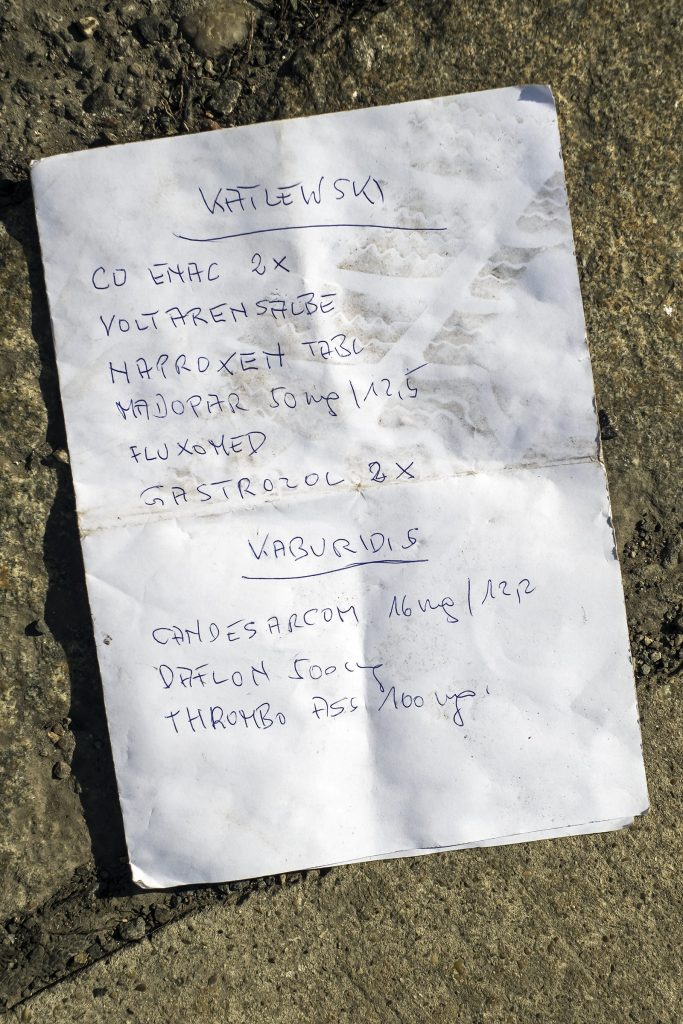 KATLEWSKI
CO ENAC 2X
VOLTARENSALBE
NAPROXEN TABL
MADOPAR 50mg/12,5
FLUXOMED
GASTROZOL 2X
KABURIDIS
CANDESARCOM 16mg/12,2
DAFLON 500mg
THROMBO ASS 100mg.